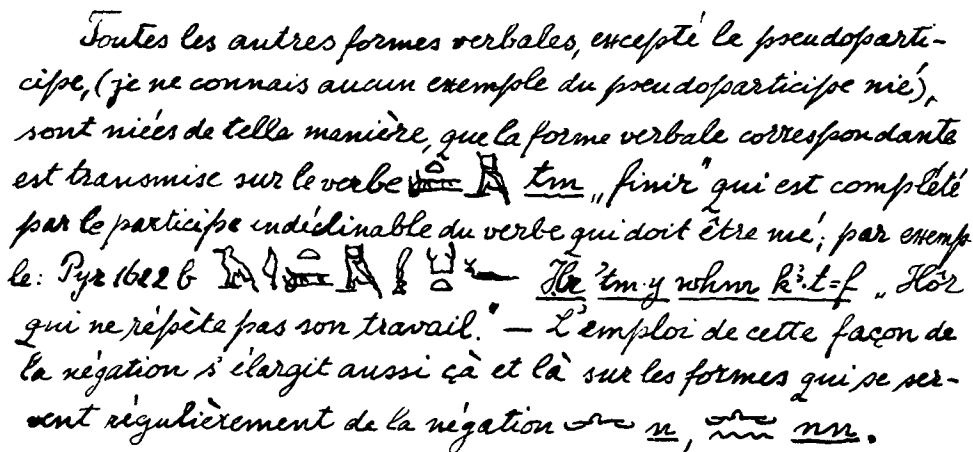 Toutes les autres formes verbales, excepté le pseudoparti-
cipe, (je ne connais aucun exemple du pseudoparticipe nié),
sont niées de telle manière, que la forme verbale correspondante
est transmise sur le verbe tm „finir" qui est complété
par le participe indéclinable du verbe qui doit être nié; par exemp-
le: Pyr 1622 b Ḥr tm·y wḥm k3·t=f „Hôr
qui ne répète pas son travail." — L'emploi de cette façon de
la négation s'élargit aussi çà et là sur les formes qui se ser-
vent régulièrement de la négation n, nn.